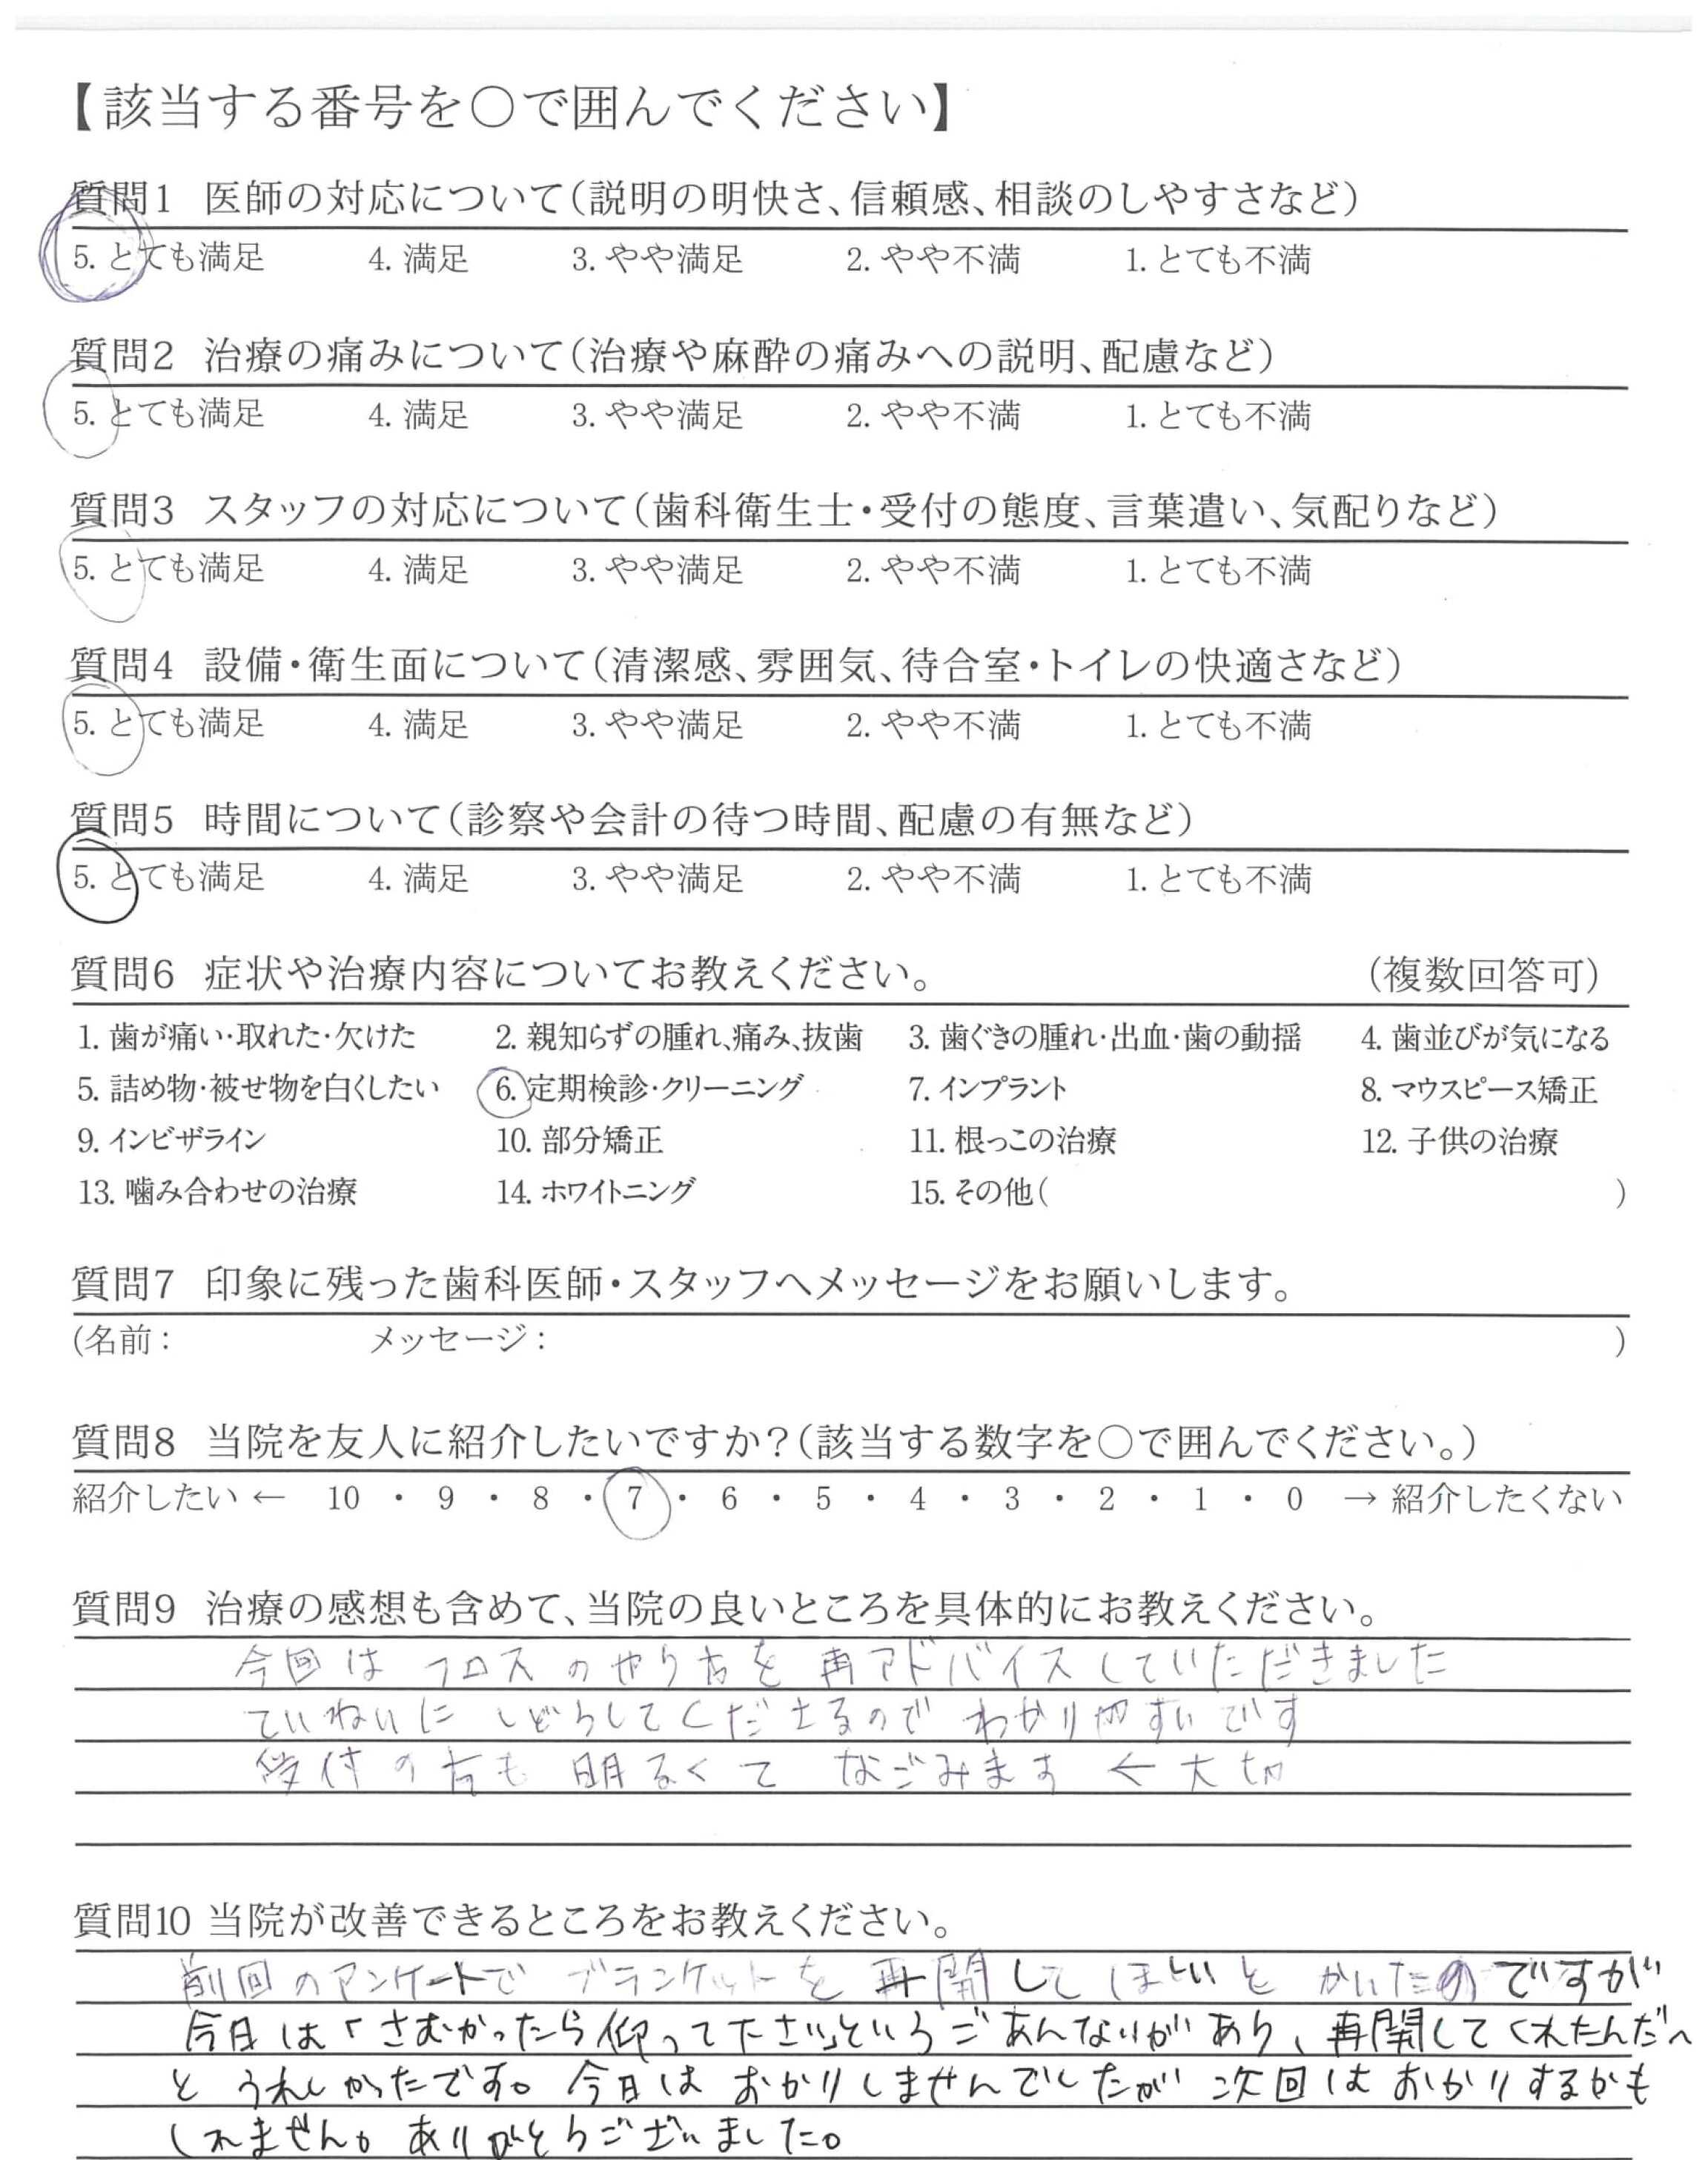 【該当する番号を○で囲んでください】
質問1 医師の対応について(説明の明快さ、信頼感、相談のしやすさなど)
5. とても満足 4. 満足 3. やや満足 2. やや不満 1. とても不満
質問2 治療の痛みについて(治療や麻酔の痛みへの説明、配慮など)
5. とても満足 4. 満足 3. やや満足 2. やや不満 1. とても不満
質問3 スタッフの対応について(歯科衛生士・受付の態度、言葉遣い、気配りなど)
5. とても満足 4. 満足 3. やや満足 2. やや不満 1. とても不満
質問4 設備・衛生面について(清潔感、雰囲気、待合室・トイレの快適さなど)
5. とても満足 4. 満足 3. やや満足 2. やや不満 1. とても不満
質問5 時間について(診察や会計の待つ時間、配慮の有無など)
5. とても満足 4. 満足 3. やや満足 2. やや不満 1. とても不満
質問6 症状や治療内容についてお教えください。 (複数回答可)
1. 歯が痛い・取れた・欠けた 2. 親知らずの腫れ、痛み、抜歯 3. 歯ぐきの腫れ・出血・歯の動揺 4. 歯並びが気になる
5. 詰め物・被せ物を白くしたい 6. 定期検診・クリーニング 7. インプラント 8. マウスピース矯正
9. インビザライン 10. 部分矯正 11. 根っこの治療 12. 子供の治療
13. 噛み合わせの治療 14. ホワイトニング 15. その他( )
質問7 印象に残った歯科医師・スタッフへメッセージをお願いします。
(名前: メッセージ: )
質問8 当院を友人に紹介したいですか?(該当する数字を○で囲んでください。)
紹介したい ← 10 ・ 9 ・ 8 ・ 7 ・ 6 ・ 5 ・ 4 ・ 3 ・ 2 ・ 1 ・ 0 → 紹介したくない
質問9 治療の感想も含めて、当院の良いところを具体的にお教えください。
今回は フロスのやり方を 再アドバイスしていただきました
ていねいに しどうしてくださるので わかりやすいです
受付の方も 明るくて なごみます ← 大切
質問10 当院が改善できるところをお教えください。
前回のアンケートで ブランケットを 再開してほしいと かいたのですが
今日は「さむかったら仰って下さい」というごあんないがあり、再開してくれたんだヘ
と うれしかったです。今日は おかりしませんでしたが 次回は おかりするかも
しれません。ありがとうございました。